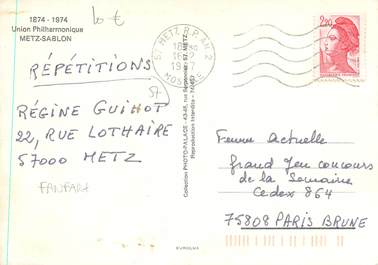 1874 - 1974
Union Philharmonique
METZ-SABLON
10 €
RÉPÉTITIONS
57
RÉGINE GUIHOT
22, RUE LOTHAIRE
57000 METZ
FANFARE
Collection PHOTO-PALACE - 43-45, rue Serpenoise - 57. METZ
Reproduction Interdite
EUROLUX
57 METZ R.P. AN 2
MOSELLE
2,20
Femme Actuelle
Grand Jeu concours
de la Semaine
Cedex 864
75808 PARIS BRUNE